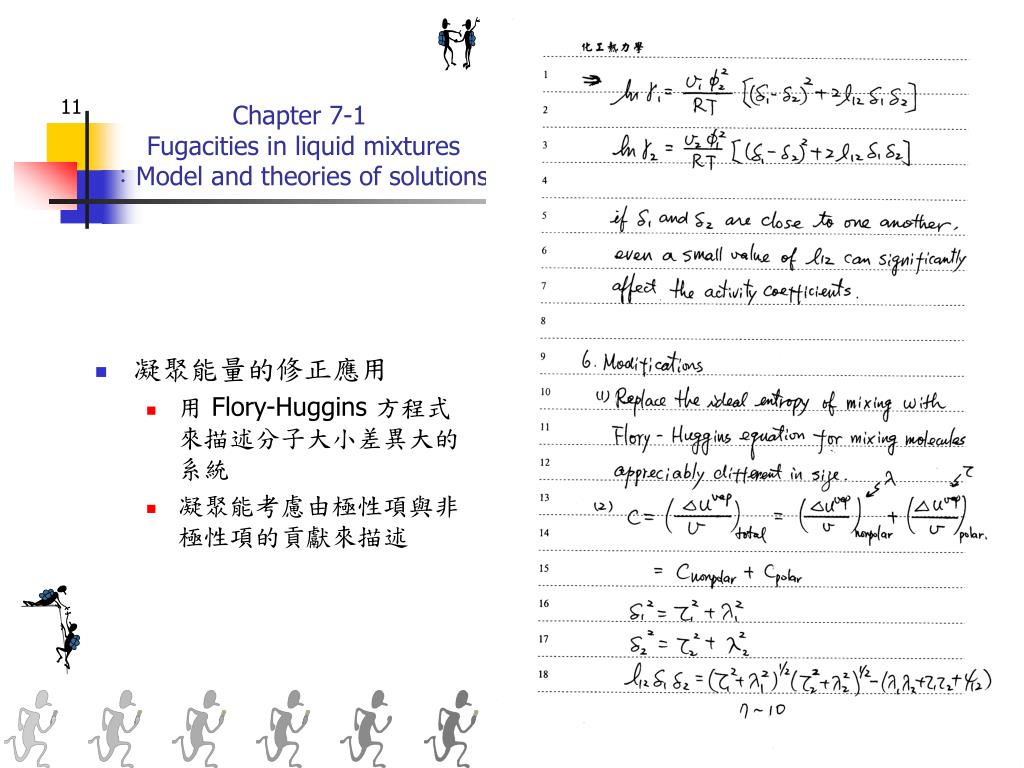 11
Chapter 7-1
Fugacities in liquid mixtures
: Model and theories of solutions
凝聚能量的修正應用
用 Flory-Huggins 方程式
來描述分子大小差異大的
系統
凝聚能考慮由極性項與非
極性項的貢獻來描述
化工熱力學
1
⇒ ln γ₁ = v₁φ₂²/RT [(δ₁-δ₂)²+2l₁₂δ₁δ₂]
2
3
ln γ₂ = v₂φ₁²/RT [(δ₁-δ₂)²+2l₁₂δ₁δ₂]
4
5
if δ₁ and δ₂ are close to one another,
6
even a small value of l₁₂ can significantly
7
affect the activity coefficients.
8
9
6. Modifications
10
(1) Replace the ideal entropy of mixing with
11
Flory-Huggins equation for mixing molecules
12
appreciably different in size.
λ τ
13
(2) C = (ΔU^vap/v)total = (ΔU^vap/v)nonpolar + (ΔU^vap/v)polar.
14
15
= Cnonpolar + Cpolar
16
δ₁² = τ₁² + λ₁²
17
δ₂² = τ₂² + λ₂²
18
l₁₂δ₁δ₂ = (τ₁²+λ₁²)^1/2 (τ₂²+λ₂²)^1/2 - (λ₁λ₂+τ₁τ₂+ψ₁₂)
7~10